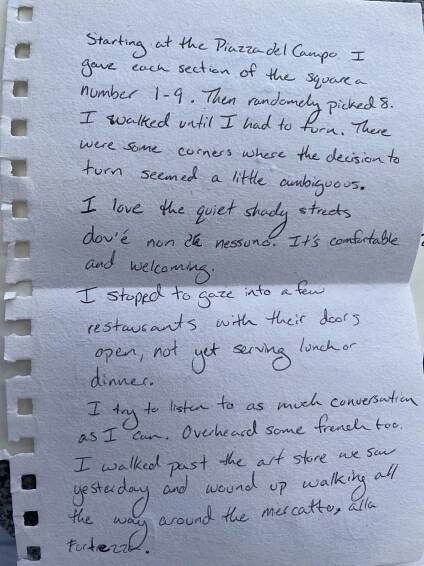 Starting at the Piazza del Campo I
gave each section of the square a
number 1-9. Then randomely picked 8.
I walked until I had to turn. There
were some corners where the decision to
turn seemed a little ambiguous.
I love the quiet shady streets
dov'é non nessuno. It's comfortable
and welcoming.
I stoped to gaze into a few
restaurants with their doors
open, not yet serving lunch or
dinner.
I try to listen to as much conversation
as I can. Overheard some french too.
I walked past the art store we saw
yesterday and wound up walking all
the way around the mercatto, alla
Fortezza.